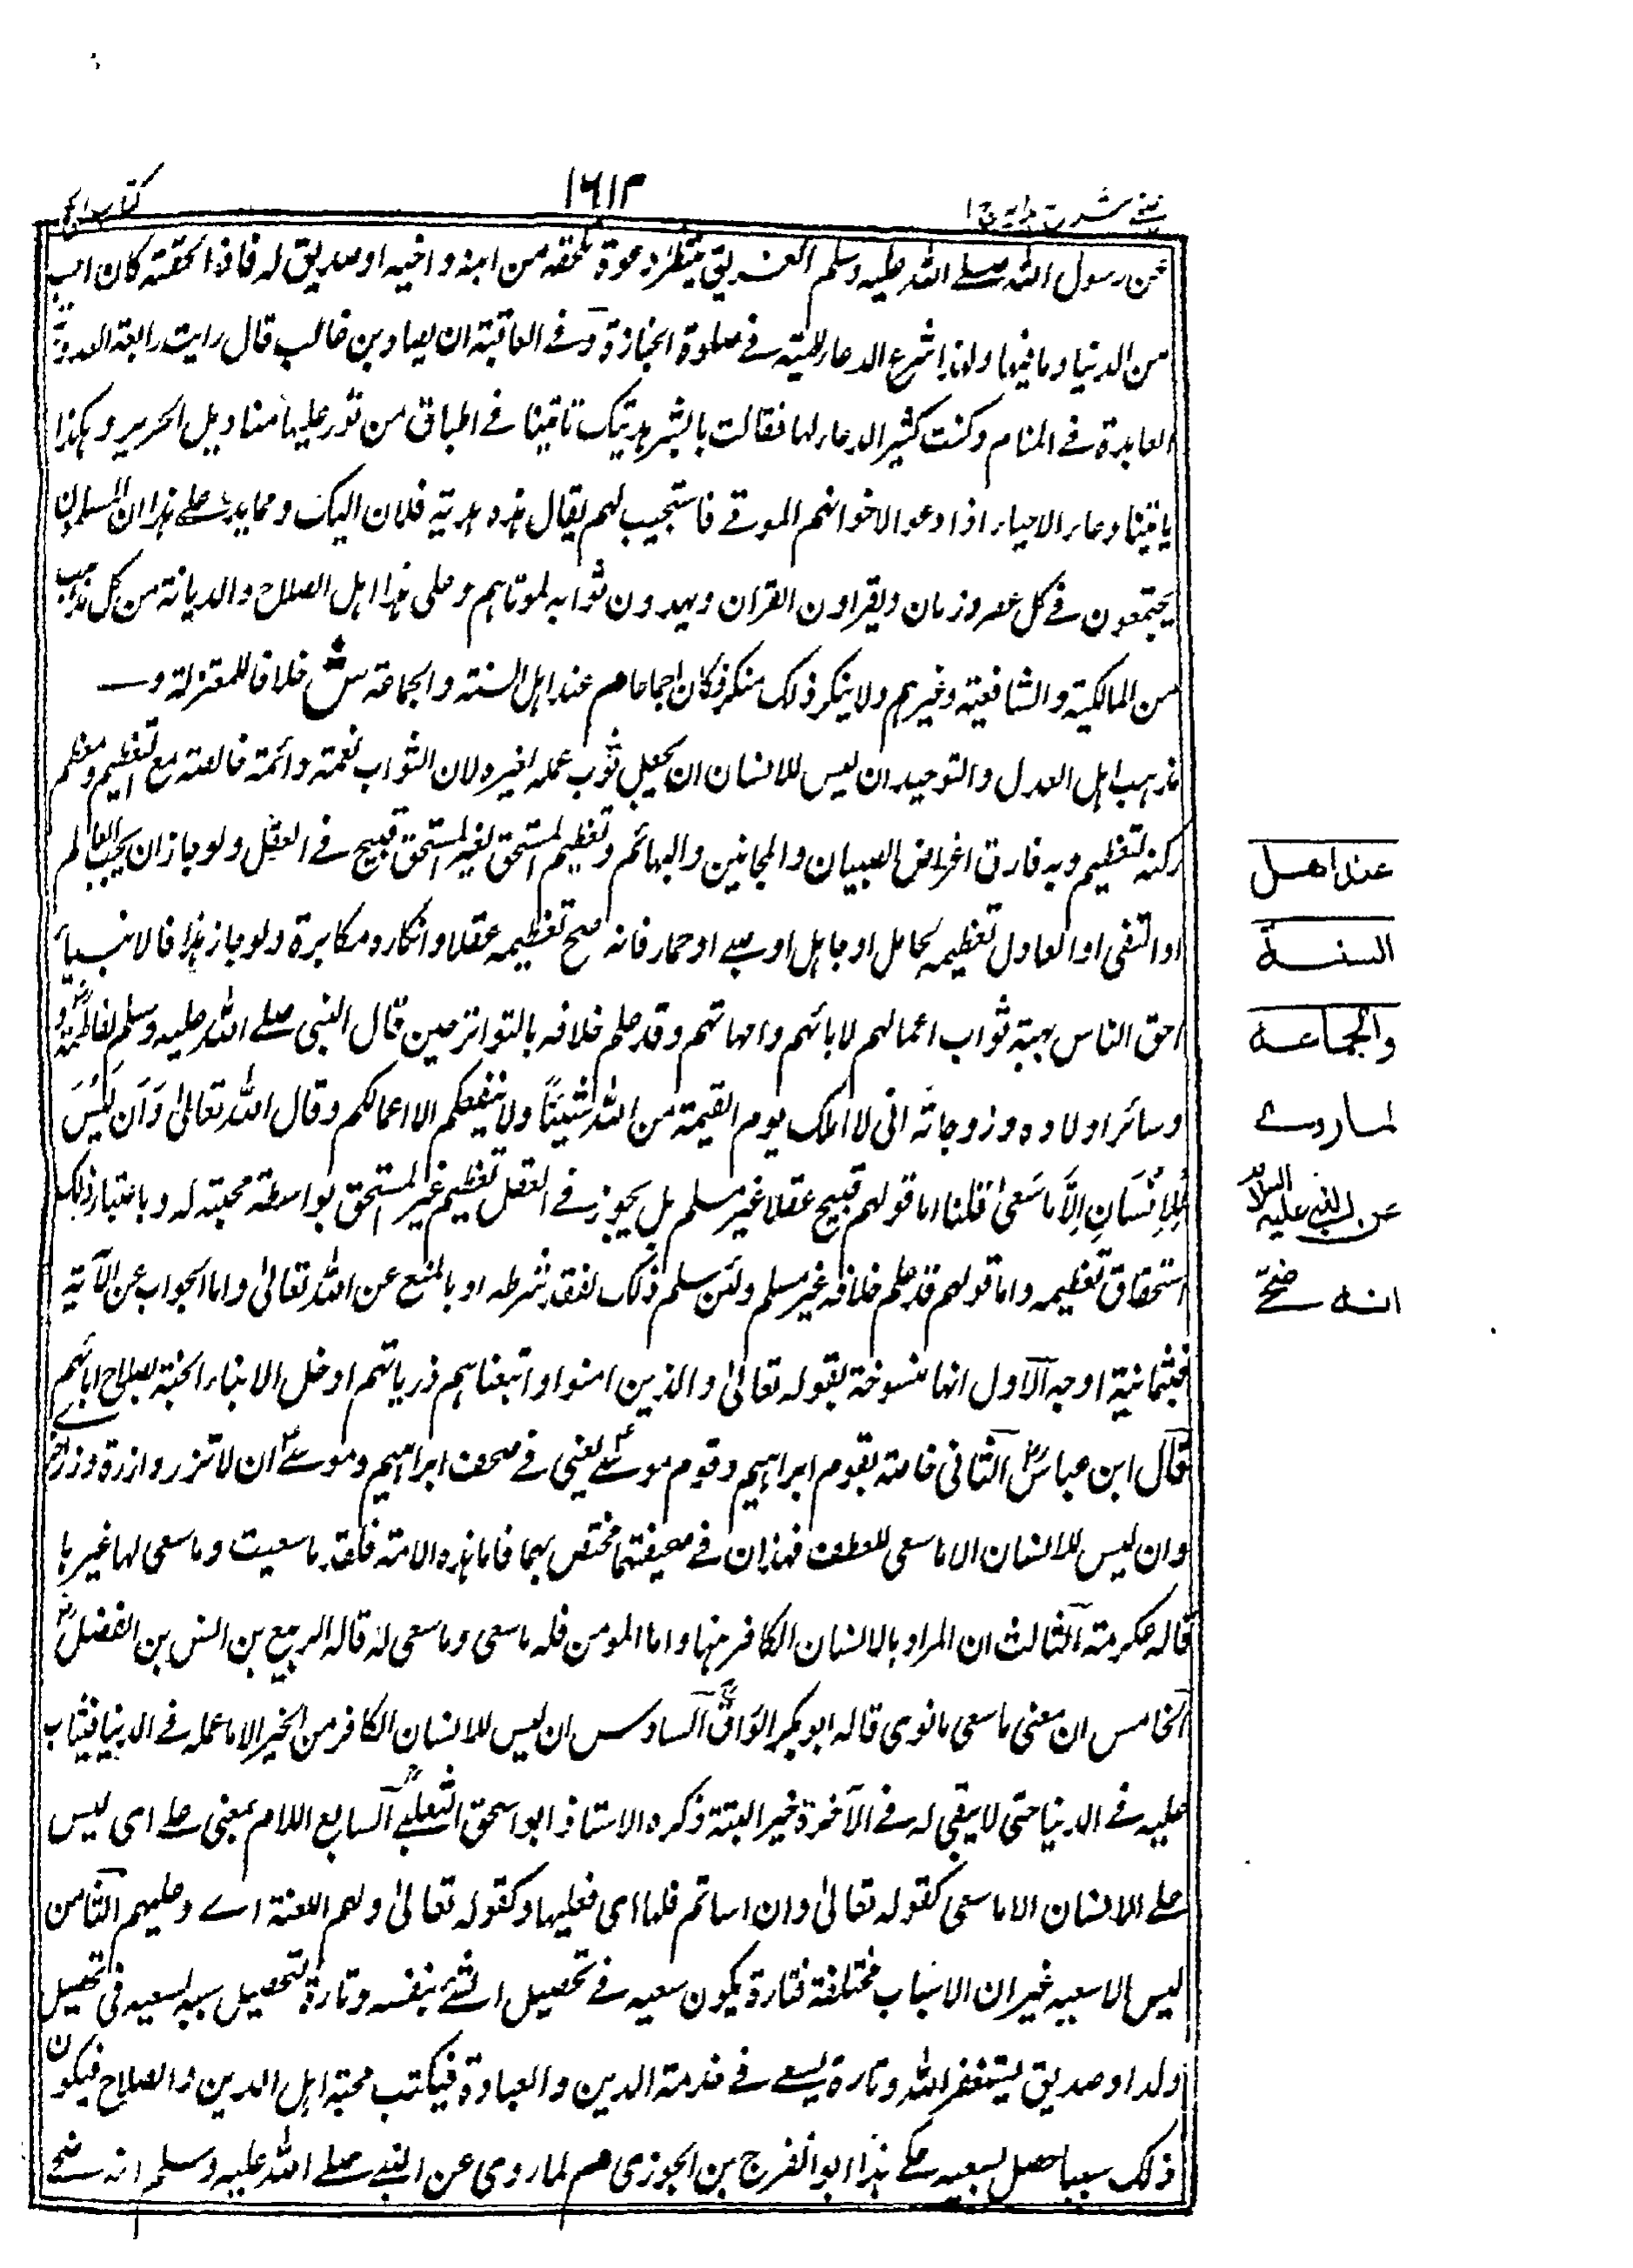 ١٦١٢
عن رسول الله صلے الله عليه وسلم الغريق ينتظر دعوة تلحقه من ابنه و اخيه او صديق له فاذا لحقته كان احب
من الدنيا وما فيها ولهذا شرع الدعاء للميت فے صلوة الجنازة وفے العاقبة ان بن غالب قال رايت رابعة العدوية
العابدة فے المنام وكنت كثير الدعاء لها فقالت يا بشر هديتك تاتينا فے اطباق من نور عليها مناديل الحرير و هكذا
ياتينا دعاء الاحياء اذا دعوا لاخوانهم الموتے فاستجيب لهم يقال هذه هدية فلان اليك ومما يدل علے هذا ان المسلمين
يجتمعون فے كل عصر وزمان ويقراون القران ويهدون ثوابه لموتاهم وعلى هذا اهل الصلاح والديانة من كل مذهب
من المالكية والشافعية وغيرهم ولا ينكر ذلك منكر فكان اجماعا هم عند اهل السنة والجماعة ش خلافا للمعتزلة و
مذهب اهل العدل والتوحيد ان ليس للانسان ان يجعل ثوب عمله لغيره لان الثواب نعمة دائمة خالصة مع التعظيم ومعظم
ركنه تعظيم وبه فارق اغراض الصبيان والمجانين والبهائم وتعظيم المستحق لغير المستحق قبيح فے العقل ولو جاز ان يجب العالم
او التقى او العادل تعظيمه لجاهل او صبے او حمار فانه صح تعظيمه عقلا وانكاره مكابرة ولو جاز هذا فالانبياء
احق الناس بهبة ثواب اعمالهم لابائهم وامهاتهم وقد علم خلافه بالتواتر حين قال النبى صلے الله عليه وسلم لفاطمة و
وسائر اولاده وزوجاته انى لا املك يوم القيمة من الله شيئا ولا ينفعكم الا اعمالكم وقال الله تعالىٰ وَاَن لَّيْسَ
لِلْاِنْسَانِ اِلَّا مَا سَعىٰ قلنا اما قولهم قبيح عقلا غير مسلم بل يجوز فے العقل تعظيم غير المستحق بواسطة محبته له وباعتبار ذلك
استحقاق تعظيمه واما قولهم قد علم خلافه غير مسلم ولئن سلم ذلك لفقد شرطه او بالمنع عن الله تعالىٰ واما الجواب عن الآية
فبثمانية اوجه الاول انها منسوخة بقوله تعالىٰ والذين امنوا واتبعناهم ذرياتهم ادخل الابناء الجنة بصلاح ابائهم
قال ابن عباس الثانى خاصة بقوم ابراهيم وقوم موسے يعنى فے صحف ابراهيم وموسے ان لا تزر وازرة وزر اخرے
وان ليس للانسان الا ما سعى للعطف فهذان فے صحيفتهما مختص بهما فاما هذه الامة فلقد ما سعيت وما سعى لها غيرها
قاله عكرمة الثالث ان المراد بالانسان الكافر منها واما المومن فله ما سعى وما سعى له قاله الربيع بن انس بن الفضل
الخامس ان معنى ما سعى ما نوى قاله ابو بكر الوراق السادس ان ليس للانسان الكافر من الخير الا ما عمله فے الدنيا فيثاب
عليه فے الدنيا حتى لا يبقى له فے الآخرة خير البتة ذكره الاستاذ ابو اسحق الثعلبے السابع اللام بمعنى علے اى ليس
علے الانسان الا ما سعى كقوله تعالىٰ وان اساتم فلها اى فعليها وكقوله تعالىٰ ولهم اللعنة اے وعليهم الثامن
ليس الا سعيه غير ان الاسباب مختلفة فتارة يكون سعيه فے تحصيل الشئ بنفسه وتارة لتحصيل سببه لسعيه فى تحصيل
ولد او صديق يستغفر الله وتارة يسعے فے خدمة الدين والعبادة فيكتب محبة اهل الدين والصلاح فيكون
ذلك سببا حصل بسعيه حكے هذا ابو الفرج بن الجوزى هم لما روى عن النبے صلے الله عليه وسلم انه ضحے
عند اهل
السنة
والجماعة
لما روے
عن النبے عليه السلام
انه ضحّے